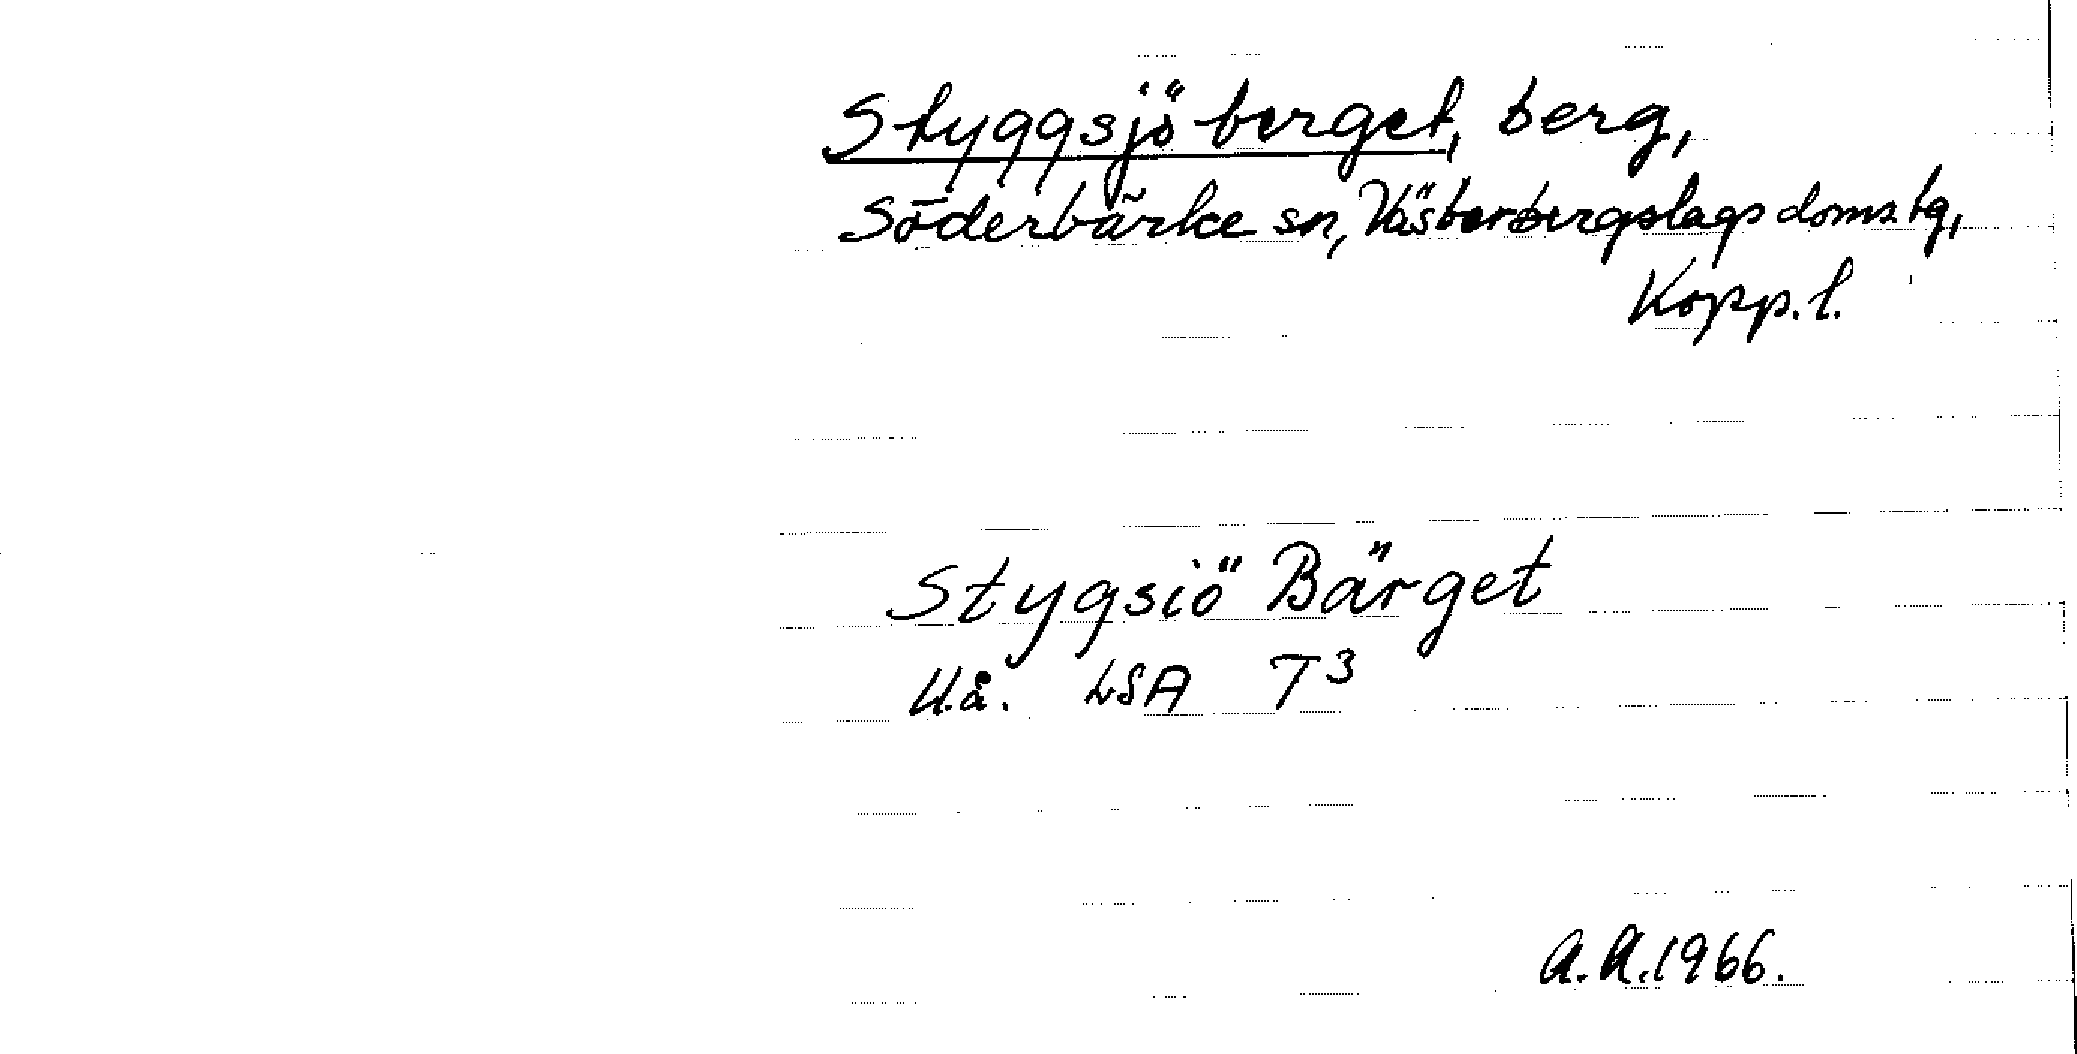 Styggsjöberget, berg,
Söderbärke sn, Västerbergslags doms.tg,
Kopp.l.
Stygsiö Bärget
U.å. LSA T3
A.A.1966.